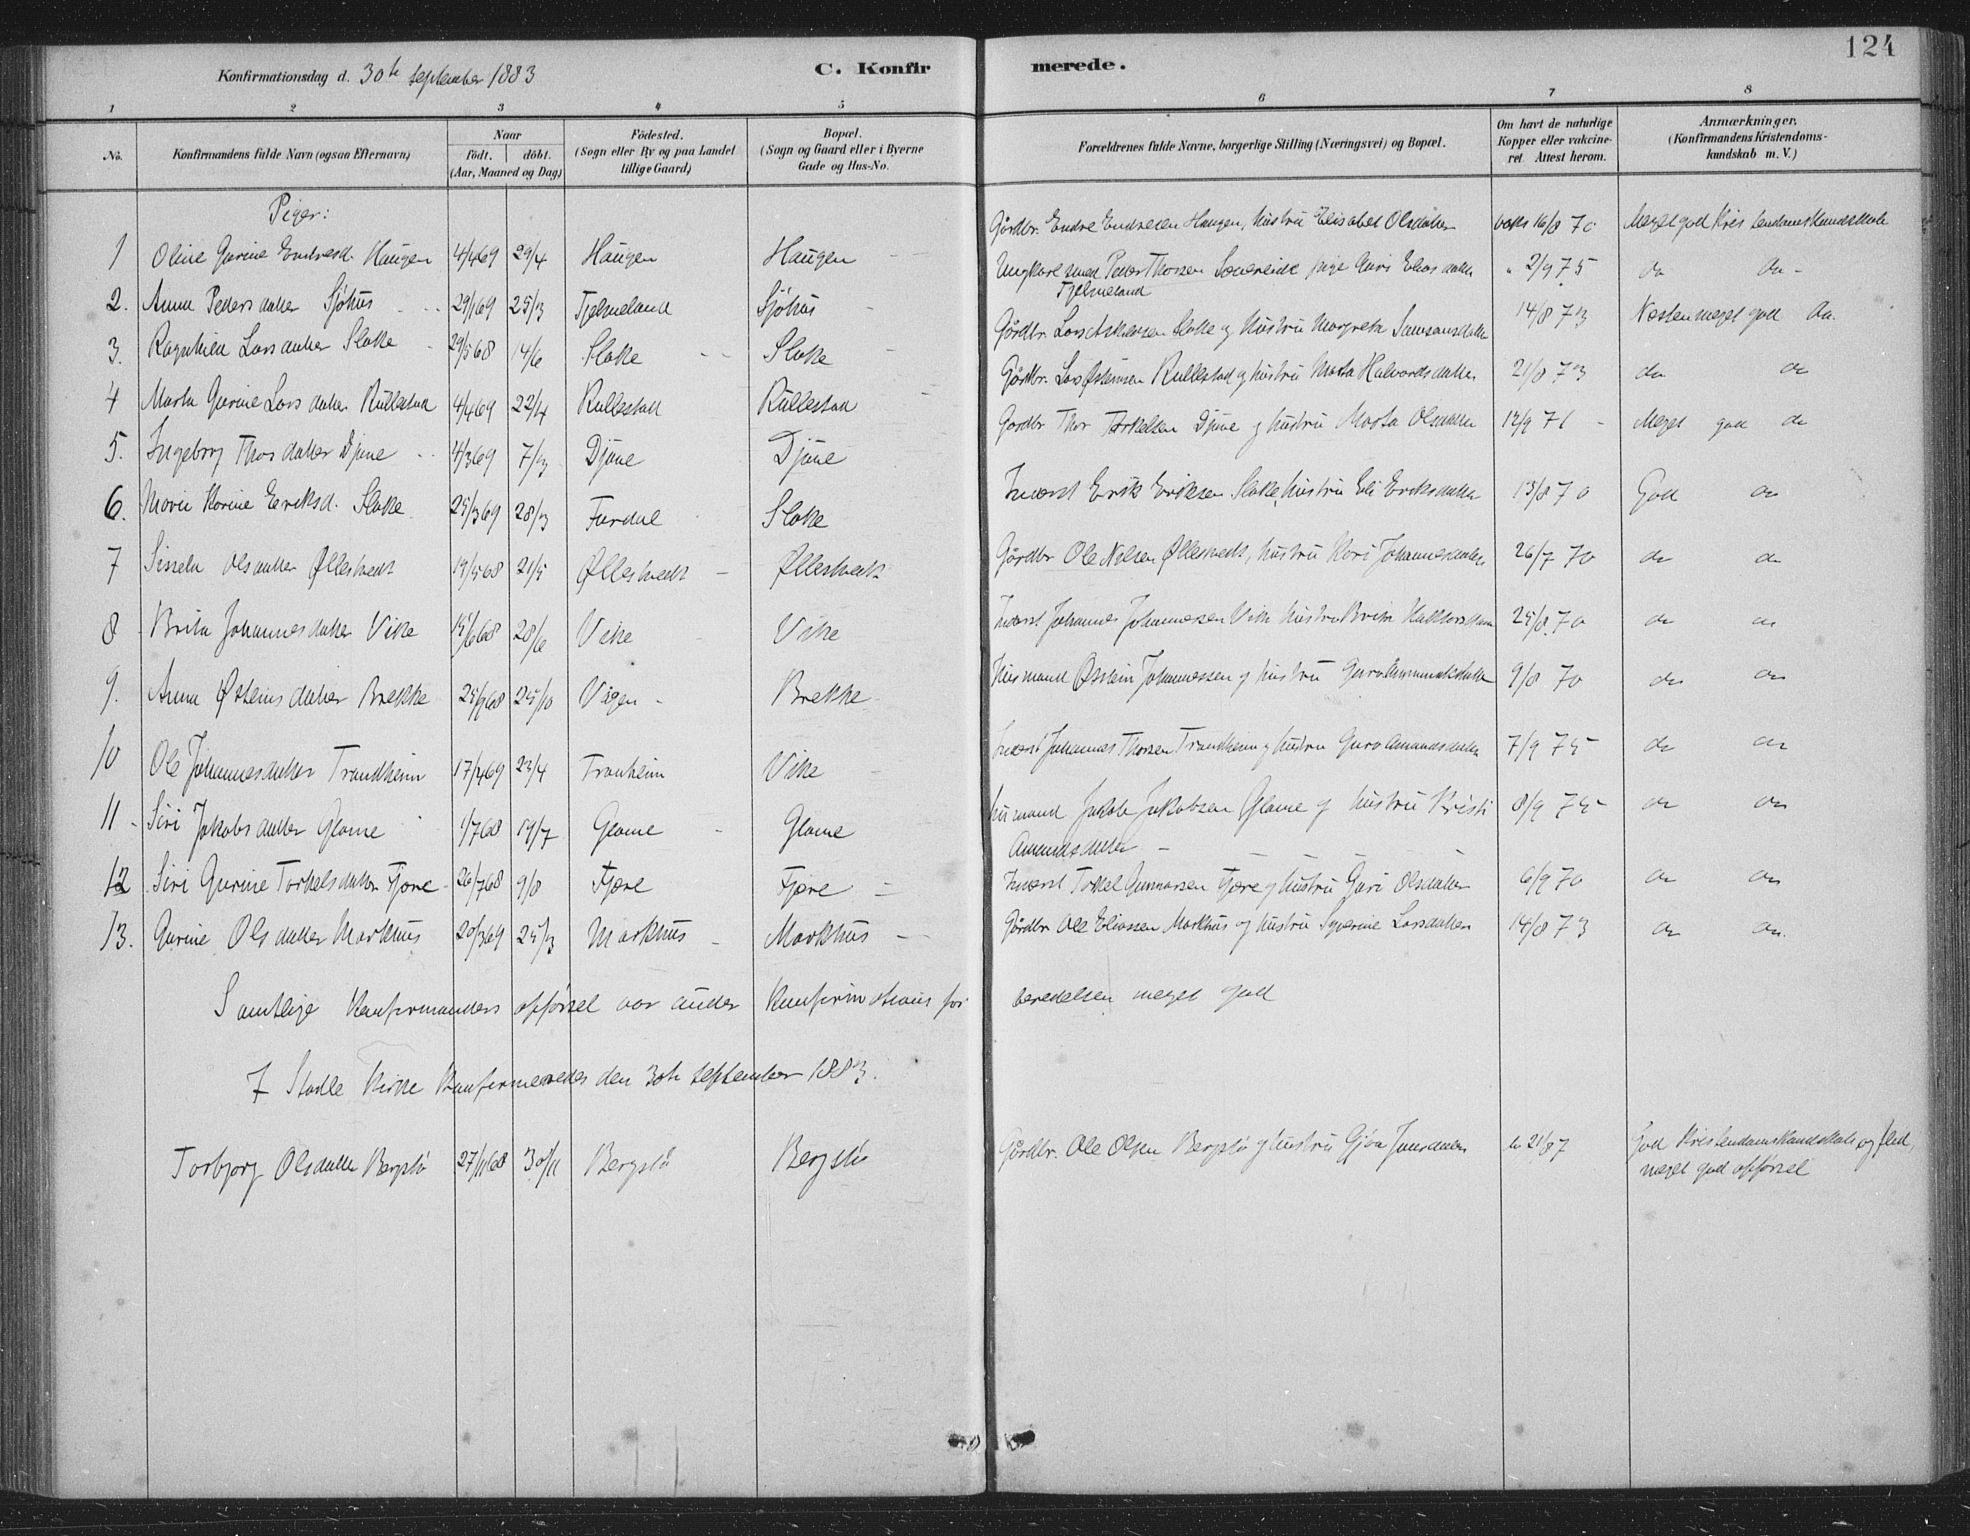 124
Konfirmationsdag d. 30te September 1883 C. Konfirmerede.
1 2 3 4 5 6 7 8
No. Konfirmandens fulde Navn (ogsaa Efternavn) Naar födt. döbt. (Aar, Maaned og Dag) Födested. (Sogn eller By og paa Landet tillige Gaard) Bopæl. (Sogn og Gaard eller i Byerne Gade og Hus-No. Forældrenes fulde Navne, borgerlige Stilling (Næringsvei) og Bopæl. Om havt de naturlige Kopper eller vakcineret. Attest herom. Anmærkninger. (Konfirmandens Kristendomskundskab m. V.)
Piger:
1 Oline Gurine Endresd. Haugen 4/4 69 29/4 Haugen Haugen Gårdbr. Endre Endresen Haugen, hustru Elisabet Olsdatter vaks 16/8 70 Meget god Kristendomskundskab
2. Anna Pedersdatter Sjöhus 29/1 69 25/3 Fjelmeland Sjöhus Ungkarl Peder Thorsen pige Guri Eliasdatter Fjelmeland " 2/9 75 do do
3. Ragnhild Larsdatter Flake 29/5 68 14/6 Flake Flake Gårdbr. Lars Flake og hustru Margreta Samsonsdatter 14/8 73 Næsten meget god do.
4 Marta Gurine Larsdatter Rullestad 4/4 69 22/4 Rullestad Rullestad Gårdbr. Lars Østensen Rullestad og hustru Marta Halvorsdatter 21/8 73 do do
5. Ingeborg Thorsdatter Djune 4/3 69 7/3 Djune Djune Gårdbr Thor Torkelsen Djune og hustru Marta Olsdatter 12/9 71 Meget god do
6. Korine Eeriksd. Flake 25/3 69 28/3 Furdal Flake Inderst Erik Eriksen Flake, hustru Eli Eriksdatter 13/8 70 God do
7 Olsdatter Øllestvedt 19/5 68 21/5 Øllestvedt Øllestvedt Gårdbr Ole Nilsen Øllestvedt, hustru Kari Johannesdatter 26/7 70 do do
8 Brita Johannesdatter Vike 15/6 68 28/6 Vike Vike Inderst Johannes Johannessen Vike hustru Brita 25/8 70 do do
9. Anna Østensdatter Brekke 25/9 68 25/10 Vågen Brekke Husmand Østein Johannessen og hustru Guro 9/8 70 do do
10 Ole Johannesdatter Trandheim 17/4 69 23/4 Tranheim Vike Inderst Johannes Thorsen Trandheim og hustru Guro Amundsdatter 7/9 75 do do
11 Siri Jakobsdatter Glame 1/7 68 19/7 Glame Glame husmand Jakob Jakobsen Glame og hustru Kristi Amundsdatter 8/9 75 do do
12 Siri Gurine Torkelsdatter Fjære 26/7 68 9/8 Fjære Fjære Inderst Torkel Gunnarsen Fjære og hustru Guri Olsdatter 6/9 70 do do
13. Gurine Olsdatter Markhus 20/3 69 25/3 Markhus Markhus Gårdbr Ole Eliassen Markhus og hustru Syverine Larsdatter 14/8 73 do do.
Samtlige Konfirmanders opförsel var under Konfirmationsforberedelsen meget god
I Stodle Kirke Konfirmeredes den 30te September 1883.
Torbjørg Olsdatter Bergstö 27/11 68 30/11 Bergstö Bergstö Gårdbr. Ole Olsen Bergstö og hustru Gjøa God Kristendomskundskab og flid, meget god opførsel